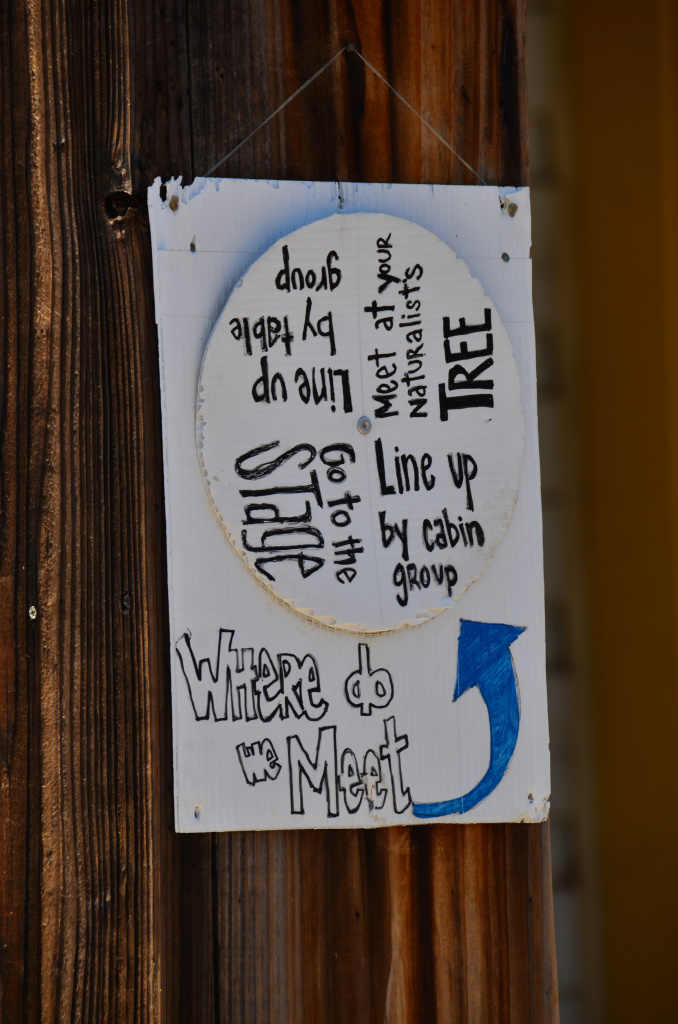 Meet at your
Naturalist's
TREE
Line up
by cabin
group
Go to the
STage
Line up
by table
group
WHeRe do
we Meet